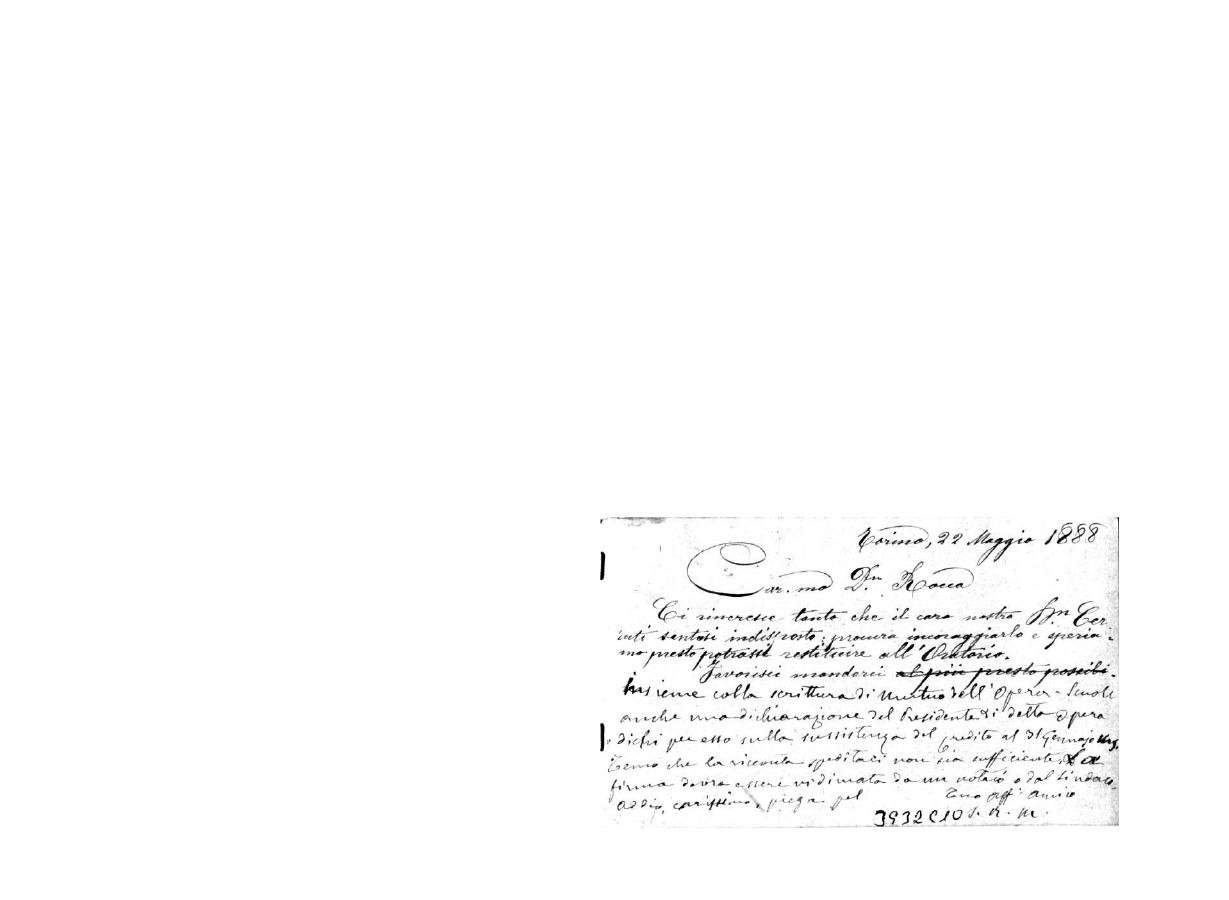 Torino, 22 Maggio 1888
Car.mo Dn. Rocca
Ci rincresce tanto che il caro nostro Sgn Cer
ruti sentasi indisposto; procura incoraggiarlo e speria-
mo presto potrassi restituire all'Oratorio.
Favorisci mandarci al più presto possibi-
insieme colla scrittura di Mutuo dell'Opera-Scuole
anche una dichiarazione del Presidente di detta Opera
o dichi per esso sulla sussistenza del credito al 31 Gennajo
Temo che la ricevuta speditaci non sia sufficiente. La
firma dovrà essere vidimata da un notaio o dal Sindaco.
Addio, carissimo, prega pel Tuo aff. amico
3932C10 S. R. M.